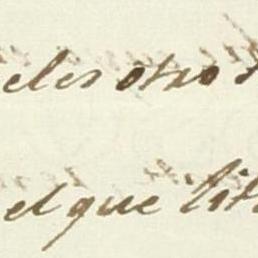 eles otro
el que lit